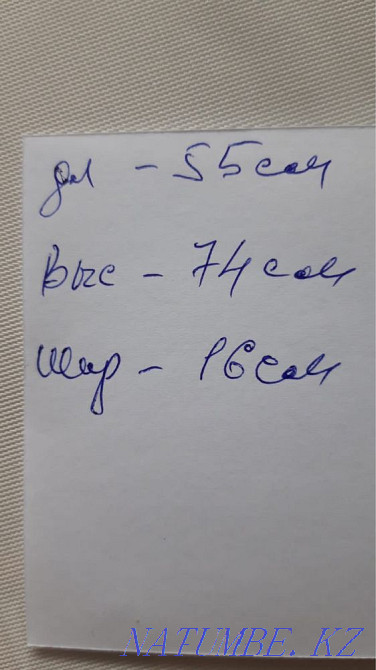 дл - 55 см
Выс - 74 см
шир - 16 см
NATUMBE.KZ